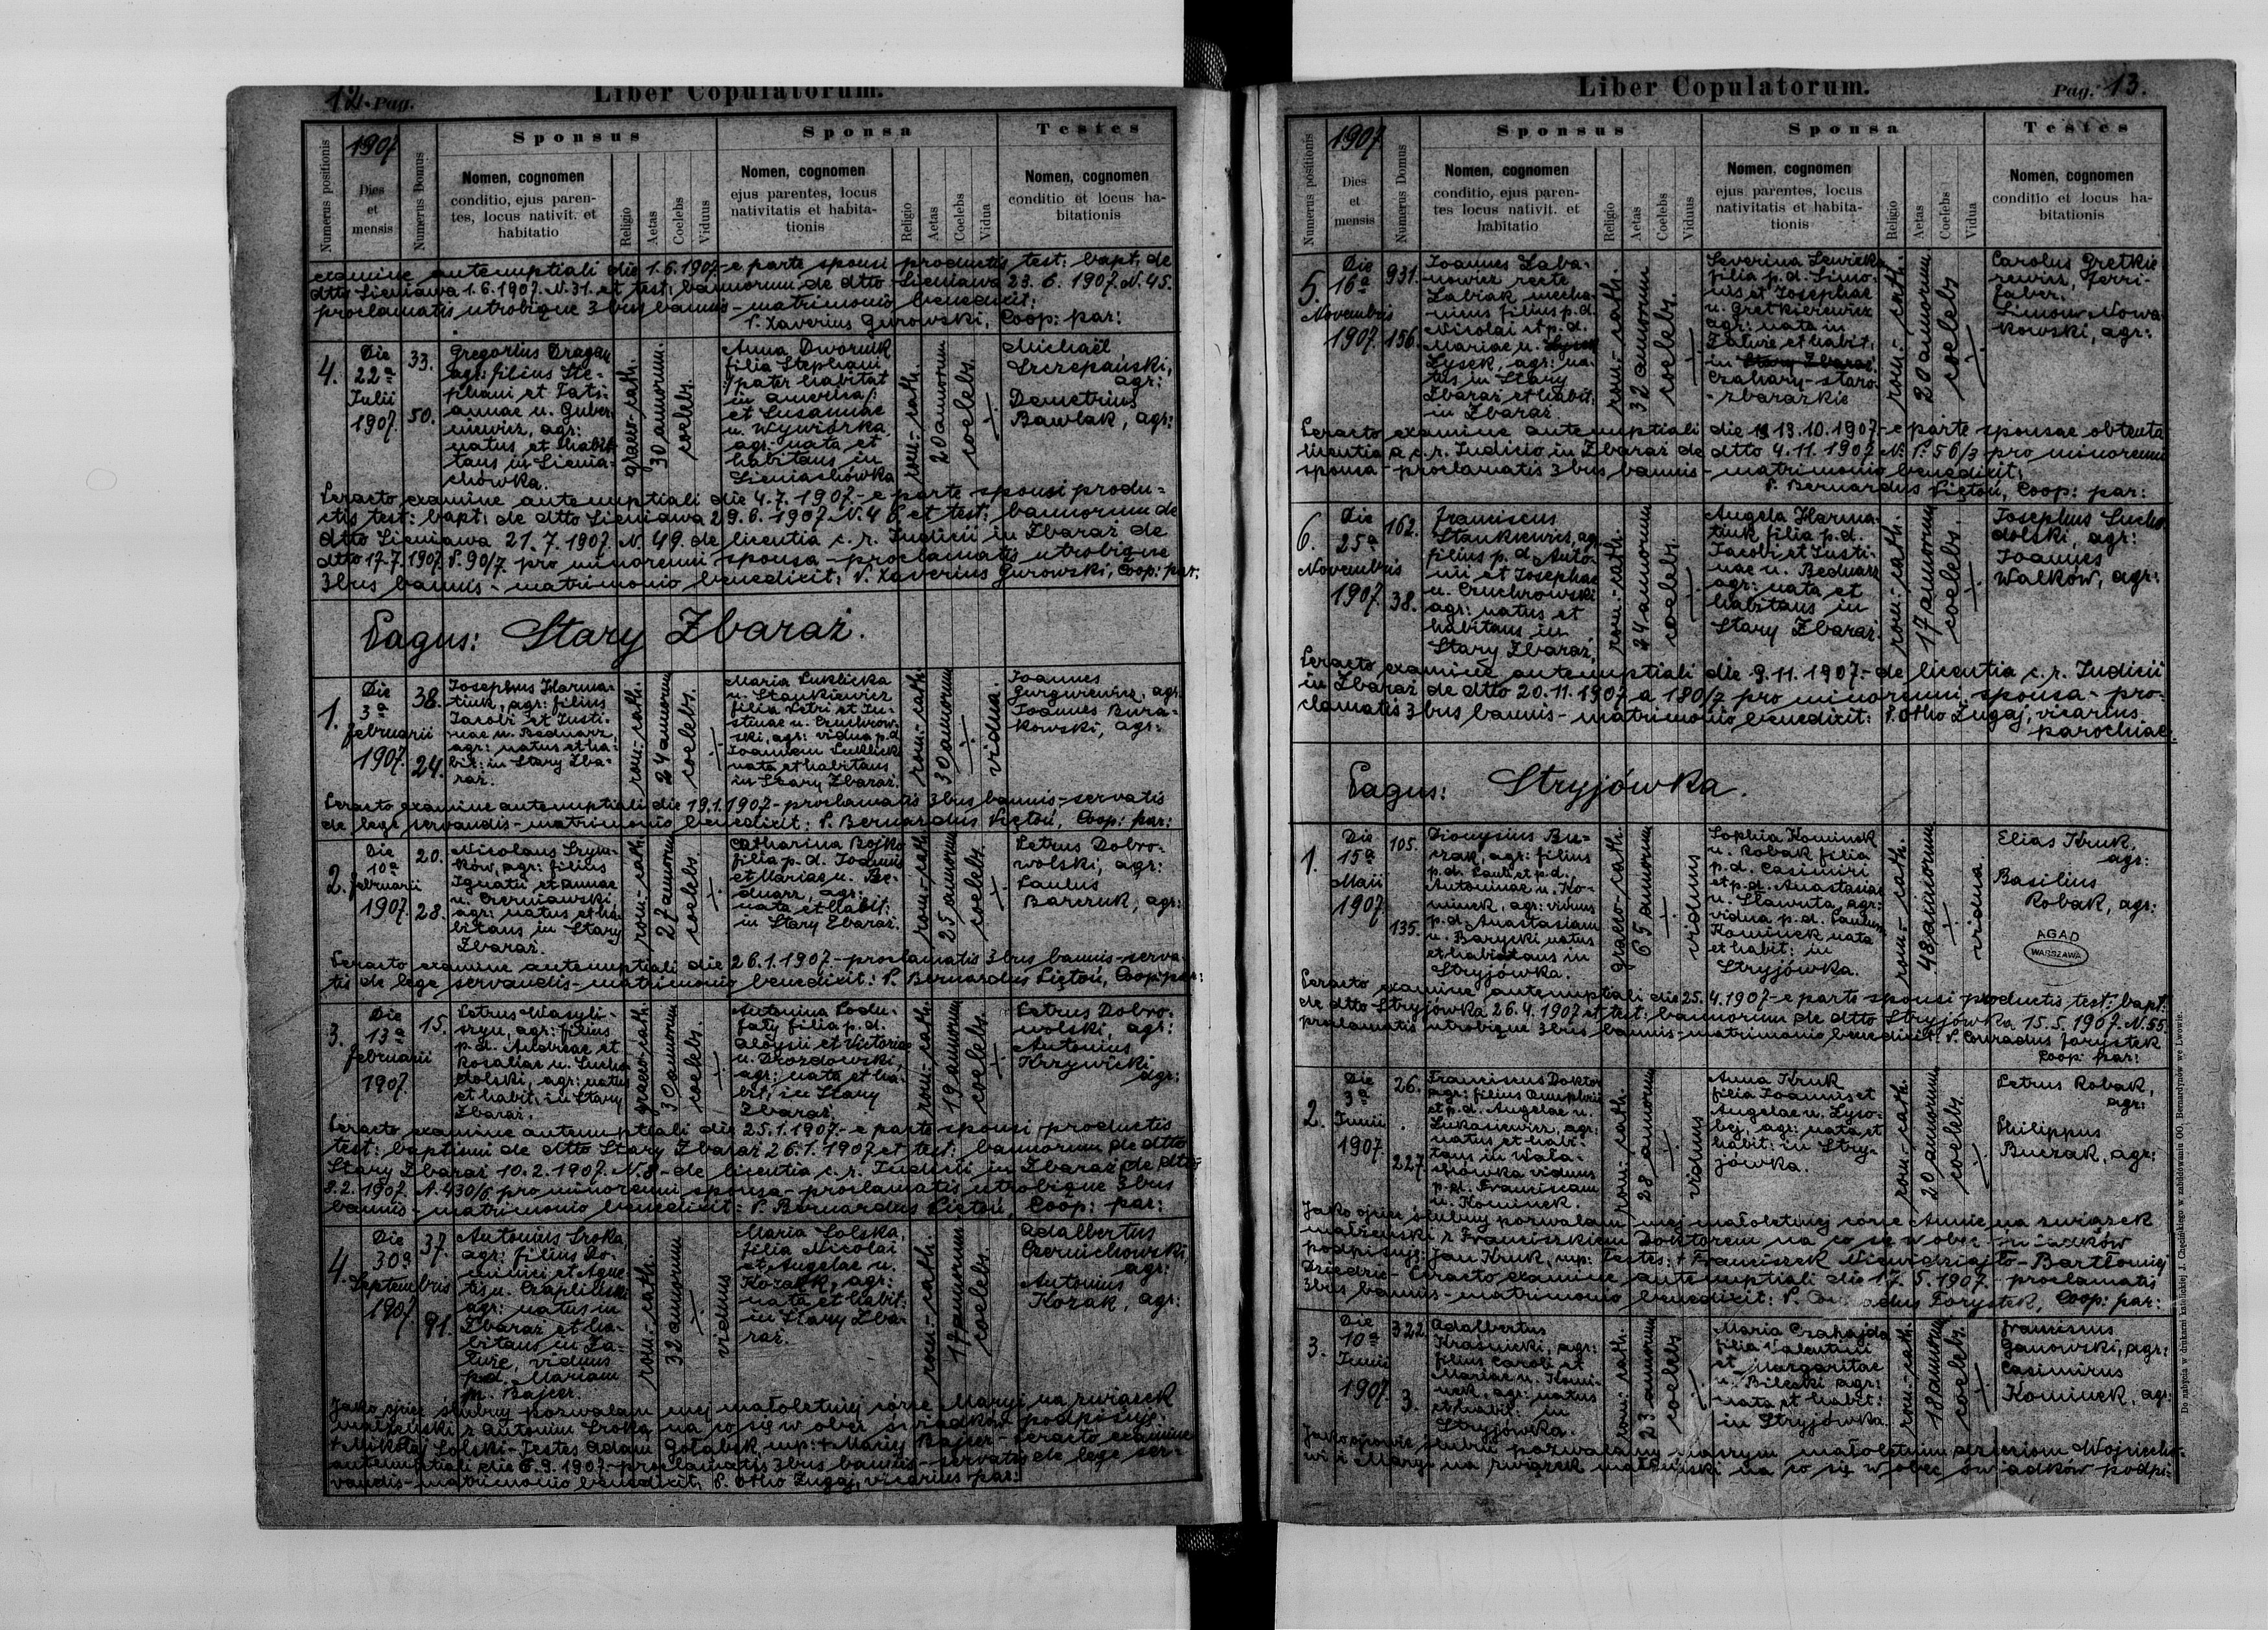 12. Pag.
Liber Copulatorum.
Numerus positionis
1907
Dies
et
mensis
Numerus Domus
Sponsus
Nomen, cognomen
conditio, ejus paren-
tes, locus nativit. et
habitatio
Religio
Aetas
Coelebs
Viduus
Sponsa
Nomen, cognomen
ejus parentes, locus
nativitatis et habita-
tionis
Religio
Aetas
Coelebs
Vidua
Testes
Nomen, cognomen
conditio et locus ha-
bitationis
examine antenuptiali die 1.6.1907.- e parte sponsi productis test: bapt. de
dtto Sieniawa 1.6.1907. N.31. et test: bannorum de dtto Sieniawa 23.6.1907. N.45.
proclamatis utrobique 3bus bannis - matrimonio benedixit:
P. Xaverius Gurowski, Coop: par:
4.
Die
22a
Julii
1907.
33.
50.
Gregorius Dragan
agr: filius Ste-
phani et Tati-
annae n. Guber
niewicz, agr:
natus et habi
tans in Sienia-
chówka.
graeco-cath.
30 annorum.
coelebs.
Anna Dwornik
filia Stephani
/pater habitat
in America/:
et Susannae
n. Wywiórka
agr: nata et
habitans in
Sieniachówka
rom-cath.
20 annorum
coelebs.
Michaël
Szczepański,
agr:
Demetrius
Bawlak, agr:
Peracto examine antenuptiali die 4.7.1907.- e parte sponsi produ-
ctis test: bapt: de dtto Sieniawa 29.6.1907. N.46 et test: bannorum de
dtto Sieniawa 21.7.1907. N. 49. de licentia c. r. Judicii in Zbaraż de
dtto 17.7.1907. P. 90/7. pro minorenni sponsa - proclamatis utrobique
3bus bannis - matrimonio benedixit: P. Xaverius Gurowski, Coop: par.
Pagus: Stary Zbaraż.
1.
Die
3a
februarii
1907.
38.
24.
Josephus Harma-
tiuk, agr: filius
Jacobi et Justi-
nae n. Bednarz,
agr: natus et ha-
bit: in Stary Zba-
raż.
rom-cath.
24 annorum
coelebs.
Maria Luklicka
n. Stankiewicz
filia Petri et Ju-
stinae n. Czuchrow-
ski, agr: vidua p.d.
Joannem Luklicki
nata et habitans
in Stary Zbaraż.
rom-cath.
30 annorum
vidua.
Joannes
Gurgurewicz, agr.
Joannes Bura-
kowski, agr:
Peracto examine antenuptiali die 19.1.1907.- proclamatis 3bus bannis - servatis
de lege servandis - matrimonio benedixit: P. Bernardus Piętoń, Coop: par:
2.
Die
10a
februarii
1907.
20.
28.
Nicolaus Szym-
ków, agr: filius
Ignatii et Annae
n. Czerniawski,
agr: natus et ha-
bitans in Stary
Zbaraż.
rom-cath.
27 annorum
coelebs.
Catharina Bojko
filia p. d. Joannis
et Mariae n. Be-
dnarz, agr:
nata et habit:
in Stary Zbaraż.
rom-cath.
25 annorum
coelebs.
Petrus Dobro-
wolski, agr:
Paulus
Barczuk, agr:
Peracto examine antenuptiali die 26.1.1907.- proclamatis 3bus bannis - serva
tis de lege servandis - matrimonio benedixit: P. Bernardus Piętoń, Coop: par:
3.
Die
13a
februarii
1907.
15.
Petrus Wasyli-
szyn, agr: filius
p. d. Andreae et
Rosaliae n. Sucho
dolski, agr: natus
et habit: in Stary
Zbaraż.
graeco-cath.
30 annorum
coelebs.
Antonina Podu-
faty filia p.d.
Aloysii et Victoriae
n. Drozdowski,
agr: nata et ha-
bit: in Stary
Zbaraż.
rom-cath.
19 annorum
coelebs.
Petrus Dobro-
wolski, agr:
Antonius
Krzywicki
agr:
Peracto examine antenuptiali die 25.1.1907.- e parte sponsi productis
test: baptismi de dtto Stary Zbaraż 26.1.1907 et test: bannorum de dtto
Stary Zbaraż 10.2.1907. N.8 - de licentia c. r. Judicii in Zbaraż de dtto
9.2.1907. N. 430/6 pro minorenni sponsa - proclamatis utrobique 3bus
bannis - matrimonio benedixit: P. Bernardus Piętoń, Coop: par:
4.
Die
30a
Septembris
1907.
37.
91.
Antonius Sroka,
agr: filius Do-
minici et Agne
tis n. Czapliński
agr: natus in
Zbaraż et ha-
bitans in Za-
łuże, viduus
p.d. Mariam
n. Bajser.
rom-cath.
32 annorum
viduus
Maria Solska,
filia Nicolai
et Angelae n.
Kozak, agr:
nata et habit:
in Stary Zba-
raż.
rom-cath.
17 annorum
coelebs.
Adalbertus
Czernichowski,
agr:
Antonius
Kozak, agr:
Jako ojciec ślubny pozwalam mej małoletniej córce Maryi na związek
małżeński z Antonim Sroką, na co się w obec świadków podpisuję:
+ Mikołaj Solski - Testes Adam Gołąbek mp: + Maciej Bajser - Peracto examine
antenuptiali die 6.9.1907 - proclamatis 3bus bannis - servatis de lege ser-
vandis - matrimonio benedixit: P. Otho Zugaj, vicarius par:
Liber Copulatorum.
Pag. 13.
Numerus positionis
1907
Dies
et
mensis
Numerus Domus
Sponsus
Nomen, cognomen
conditio, ejus paren-
tes locus nativit. et
habitatio
Religio
Aetas
Coelebs
Viduus
Sponsa
Nomen, cognomen
ejus parentes, locus
nativitatis et habita-
tionis
Religio
Aetas
Coelebs
Vidua
Testes
Nomen, cognomen
conditio et locus ha-
bitationis
5.
Die
16a
Novembris
1907.
931.
156.
Joannes Laba-
nowicz recte
Labiak mecha-
nicus filius p.d.
Nicolai et p.d.
Mariae n.
Łysek, agr: na-
tus in Stary
Zbaraż et habit:
in Zbaraż.
rom-cath.
32 annorum
coelebs.
Severina Lewicka
filia p. d. Simo-
nis et Josephae
n. Gretkierewicz
agr: nata in
Załuże et habit:
in Stary Zbaraż.
Czahary-staro
-zbarazkie
rom-cath.
20 annorum
coelebs
Carolus Gretkie
rewicz, ferri-
faber.
Simon Nowa
kowski, agr:
Peracto examine antenuptiali die 13.10.1907.- e parte sponsae obtenta
licentia a c. r. Judicio in Zbaraż de dtto 4.11.1907. N: P. 56/3 pro minorenni
sponsa - proclamatis 3bus bannis - matrimonio benedixit:
P. Bernardus Piętoń, Coop: par:
6.
Die
25a
Novembris
1907.
162.
38.
Franciscus
Stankiewicz, agr
filius p. d. Anto-
nii et Josephae
n. Czuchrowski
agr: natus et
habitans in
Stary Zbaraż.
rom-cath.
24 annorum
coelebs.
Angela Harma-
tiuk filia p.d.
Jacobi et Justi-
nae n. Bednarz
agr: nata et
habitans in
Stary Zbaraż.
rom-cath.
17 annorum
coelebs.
Josephus Sucho
dolski, agr:
Joannes
Walków, agr:
Peracto examine antenuptiali die 9.11.1907.- de licentia c. r. Judicii
in Zbaraż de dtto 20.11.1907 a 180/7 pro minorenni sponsa - pro-
clamatis 3bus bannis - matrimonio benedixit: P. Otho Zugaj, vicarius
parochiae.
Pagus: Stryjówka.
1.
Die
15a
Maii
1907
105.
135.
Dionysius Bu-
czak, agr: filius
p.d. Pauli et p.d.
Antoninae n. Ko-
minek, agr: viduus
p.d. Anastasiam
n. Barycki natus
et habitans in
Stryjówka.
graeco-cath.
65 annorum
viduus
Sophia Kominek
n. Robak filia
p.d. Casimiri
et p.d. Anastasiae
n. Sławuta, agr:
vidua p.d. Paulum
Kominek nata
et habit: in
Stryjówka.
rom-cath.
48 annorum.
vidua.
Elias Kruk,
agr:
Basilius
Robak, agr:
AGAD
WARSZAWA
Peracto examine antenuptiali die 25.4.1907 - e parte sponsi productis test: bapt:
de dtto Stryjówka 26.4.1907 et test: bannorum de dtto Stryjówka 15.5.1907. N.55.
proclamatis utrobique 3bus bannis - matrimonio benedixit: P. Conradus Forystek
Coop: par:
2.
Die
3a
Junii
1907.
26.
227.
Franciscus Doktor
agr: filius Onuphrii
et p.d. Angelae n.
Łukasiewicz, agr:
natus et habi-
tans in Wała-
chówka viduus
p.d. Franciscam
n. Kominek.
rom-cath.
28 annorum
viduus
Anna Kruk
filia Joannis et
Angelae n. Łyso-
bej, agr: nata et
habit: in Stry-
jówka.
rom-cath.
20 annorum
coelebs.
Petrus Robak,
agr:
Philippus
Buczak, agr:
Jako ojciec ślubny pozwalam mej małoletniej córce Annie na związek
małżeński z Franciszkiem Doktorem na co się w obec świadków
podpisuję: Jan Kruk, mp: Testes: + Franciszek Niewidziajło - Bartłomiej
Dziedzic - Peracto examine antenuptiali die 17.5.1907.- proclamatis
3bus bannis - matrimonio benedixit: P. Conradus Forystek, Coop: par:
3.
Die
10a
Junii
1907.
322
3.
Adalbertus
Kraśnicki, agr:
filius Caroli et
Mariae n. Komi-
nek, agr: natus
et habit: in
Stryjówka.
rom-cath.
23 annorum
coelebs
Maria Czahajda
filia Valentini
et Margaritae
n. Bilecki agr:
nata et habit:
in Stryjówka.
rom-cath.
18 annorum
coelebs.
Franciscus
Ganowski, agr:
Casimirus
Kominek, agr.
Jako ojcowie ślubni pozwalamy naszym małoletnim dzieciom Wojciecho-
wi i Maryi na związek małżeński na co się w obec świadków podpi-
Do nabycia w drukarni katolickiej J. Chęcińskiego w zabudowaniu OO. Bernardynów we Lwowie.